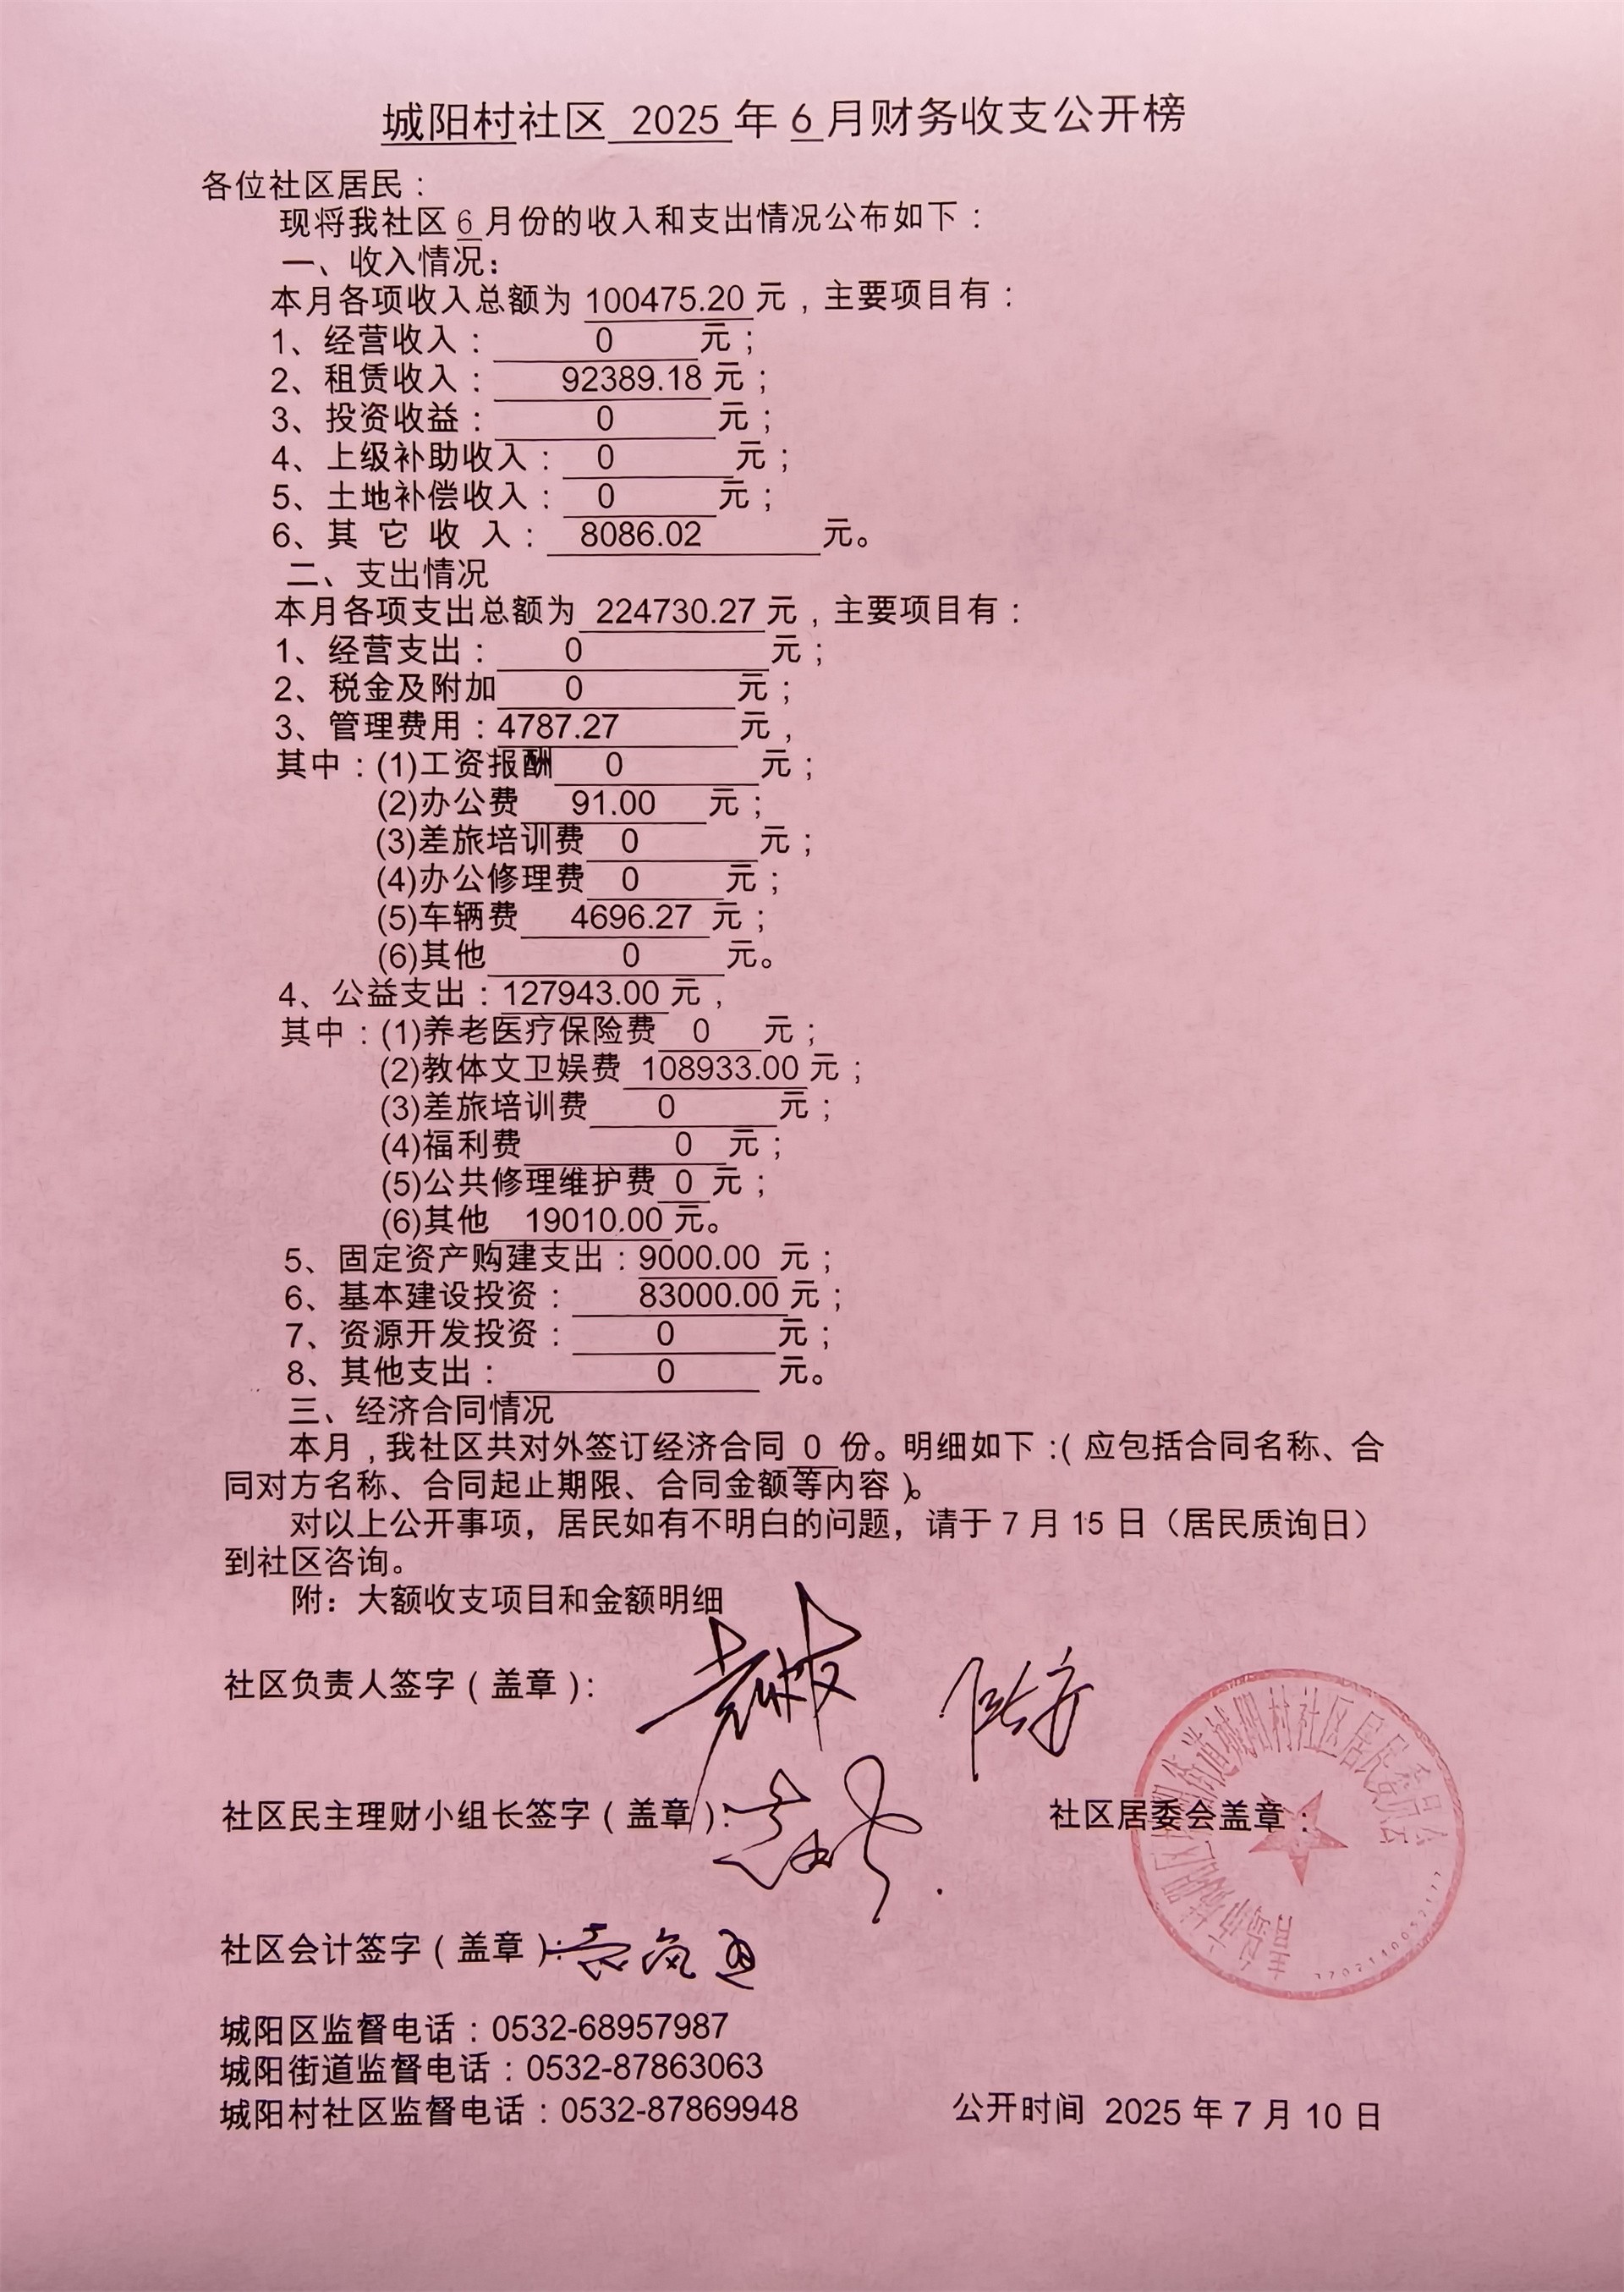 城阳村社区 2025 年 6 月财务收支公开榜
各位社区居民：
现将我社区 6 月份的收入和支出情况公布如下：
一、收入情况：
本月各项收入总额为 100475.20 元，主要项目有：
1、经营收入： 0 元；
2、租赁收入： 92389.18 元；
3、投资收益： 0 元；
4、上级补助收入： 0 元；
5、土地补偿收入： 0 元；
6、其 它 收 入： 8086.02 元。
二、支出情况
本月各项支出总额为 224730.27 元，主要项目有：
1、经营支出： 0 元；
2、税金及附加 0 元；
3、管理费用：4787.27 元，
其中：(1)工资报酬 0 元；
(2)办公费 91.00 元；
(3)差旅培训费 0 元；
(4)办公修理费 0 元；
(5)车辆费 4696.27 元；
(6)其他 0 元。
4、公益支出：127943.00 元，
其中：(1)养老医疗保险费 0 元；
(2)教体文卫娱费 108933.00 元；
(3)差旅培训费 0 元；
(4)福利费 0 元；
(5)公共修理维护费 0 元；
(6)其他 19010.00 元。
5、固定资产购建支出：9000.00 元；
6、基本建设投资： 83000.00 元；
7、资源开发投资： 0 元；
8、其他支出： 0 元。
三、经济合同情况
本月，我社区共对外签订经济合同 0 份。明细如下：（应包括合同名称、合
同对方名称、合同起止期限、合同金额等内容）。
对以上公开事项，居民如有不明白的问题，请于 7 月 15 日（居民质询日）
到社区咨询。
附：大额收支项目和金额明细
社区负责人签字（盖章）：
社区民主理财小组长签字（盖章）： 社区居委会盖章：
社区会计签字（盖章）：
城阳区监督电话：0532-68957987
城阳街道监督电话：0532-87863063
城阳村社区监督电话：0532-87869948 公开时间 2025 年 7 月 10 日